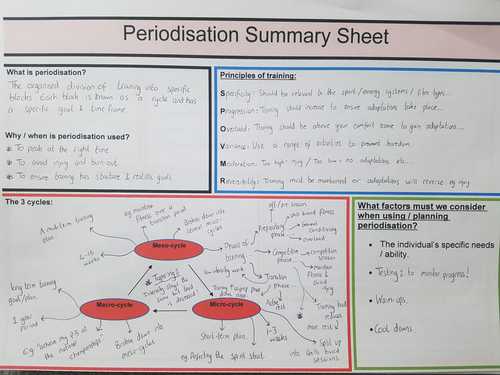 Periodisation Summary Sheet
What is periodisation?
The organised division of training into specific
blocks. Each block is known as a cycle and has
a specific goal & time frame.
Why / when is periodisation used?
To peak at the right time
To avoid injury and burn-out
To ensure training has structure & realistic goals
Principles of training:
Specificity: Should be relevant to the sport / energy systems / fibre types...
Progression: Training should increase to ensure adaptations take place...
Overload: Training should be above your comfort zone to gain adaptations...
Variance: Use a range of activities to prevent boredom.
Moderation: Too high: injury / Too low: no adaptations etc...
Reversibility: Training must be maintained or adaptations will reverse. eg injury
The 3 cycles:
A mid-term training
plan
4-10
weeks
eg maintain
fitness over a
transition period
Broken down into
several micro-
cycles
Meso-cycle
Phases of
training
Preparatory
phase
off / pre season
skill based fitness
General
conditioning
overload
Competitive
phase
competition
season
maintain
fitness &
avoid
injury
Training load
reduces
more rest
Transition
phase
Active
rest
low intensity work
Tapering =
Intensity stays the
same but load
is decreased!
Macro-cycle
long term training
goal/plan.
1 year
period
Eg "achieve my P.B at
the national
championships"
Broken down into
meso-cycles
Micro-cycle
Short-term plan.
eg. Perfecting the sprint start.
1-3
weeks
Split up
into skills based
sessions.
What factors must we consider
when using / planning
periodisation?
The individual's specific needs
/ ability.
Testing to monitor progress!
Warm-ups.
Cool downs